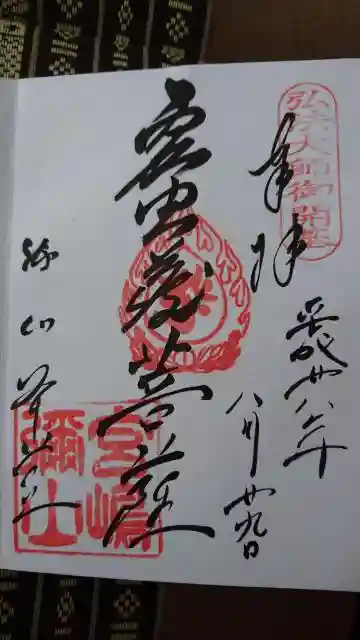 弘法大師御開基
奉拝
平成廿八年
八月廿九日
虚空蔵菩薩
弥山本堂
宮嶋
彌山